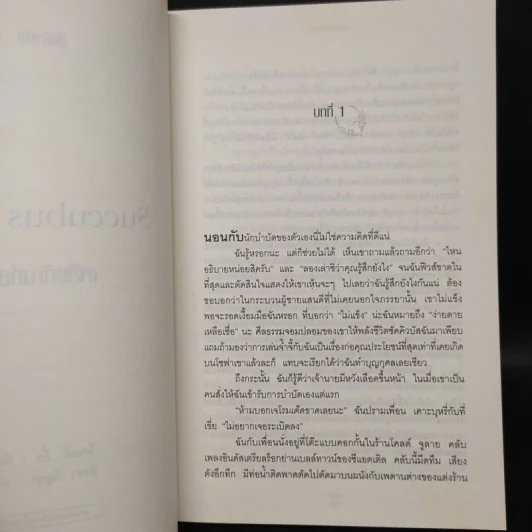 บทที่ 1
นอนกับนักบำบัดของตัวเองนี่ไม่ใช่ความคิดที่ดีแน่
ฉันรู้หรอกนะ แต่ก็ช่วยไม่ได้ เห็นเขาถามแล้วถามอีกว่า “ไหน
อธิบายหน่อยสิครับ” และ “ลองเล่าซิว่าคุณรู้สึกยังไง” จนฉันฟิวส์ขาดใน
ที่สุดและตัดสินใจแสดงให้เขาเห็นจะๆ ไปเลยว่าฉันรู้สึกยังไงกันแน่ ต้อง
ขอบอกว่าในกระบวนผู้ชายแสนดีที่ไม่เคยนอกใจภรรยานั้น เขาไม่แข็ง
พอจะรอดเงื้อมมือฉันหรอก ที่บอกว่า “ไม่แข็ง” น่ะฉันหมายถึง “ง่ายดาย
เหลือเชื่อ” นะ ศีลธรรมจอมปลอมของเขาให้พลังชีวิตซัคคิวบัสฉันมาเพียบ
แถมถ้ามองว่าการเล่นจ้ำจี้กับฉันเป็นเรื่องก่อคุณประโยชน์ที่สุดเท่าที่เคยเกิด
บนโซฟาเขาแล้วละก็ แทบจะเรียกได้ว่าฉันทำบุญกุศลเลยเชียว
ถึงกระนั้น ฉันก็รู้ดีว่าเจ้านายมีหวังเลือดขึ้นหน้า ในเมื่อเขาเป็น
คนสั่งให้ฉันเข้ารับการบำบัดเองแต่แรก
“ห้ามบอกเจโรมเด็ดขาดเลยนะ” ฉันปรามเพื่อน เคาะบุหรี่กับที่
เขี่ย “ไม่อยากเจอระเบิดลง”
ฉันกับเพื่อนนั่งอยู่ที่โต๊ะแบบคอกกั้นในร้านโคลด์ จูลาย คลับ
เพลงอินดัสเตรียลร็อกย่านเบลล์ทาวน์ของซีแอตเติล คลับนี้มืดทึม เสียง
ดังอึกทึก มีท่อน้ำติดพาดตัดไปตัดมาบนผนังกับเพดานต่างของแต่งร้าน
Succubus